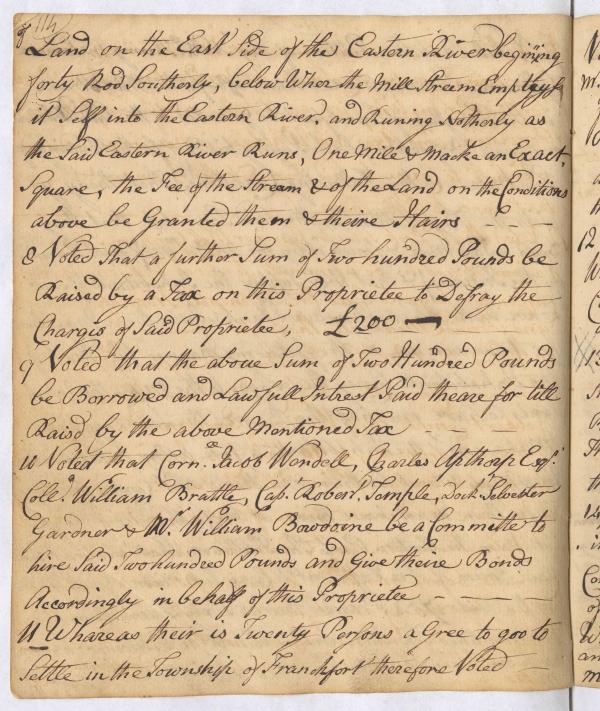 of
114
Land on the East Side of the Eastern River begining
forty Rod Southerly, below Wher the Mill Stream Emptys
it Self into the Eastern River, and Runing Notherly as
the Said Eastern River Runs, One Mile & Macke an Exact
Square, the Fee of the Stream & of the Land on the Conditions
above be Granted them & theire Hairs
8 Voted That a further Sum of Two hundred Pounds be
Raised by a Tax on this Proprietee to Defray the
Chargis of Said Proprietee, £200 —
9 Voted that the above Sum of Two Hundred Pounds
be Borrowed and Lawfull Intrest Paid theare for till
Raisd by the above Mentioned Tax
10 Voted that Jacob Wendell, Charles Apthorp Esqr.
Coll. William Brattle, Capt. Robert. Temple, Doctr. Selvester
Gardner & Mr. William Bowdoine be a Committe to
hire Said Two hundred Pounds and Give theire Bonds
Accordingly in behalf of this Proprietee
11 Whareas their is Twenty Persons a Gree to goo to
Settle in the Township of Franckfort therefore Voted
12
13
14